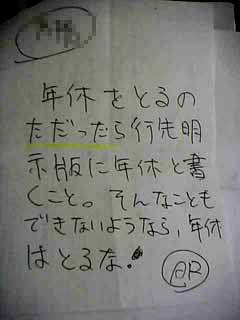 年休をとるの
ただったら行先明
示版に年休と書
くこと。そんなことも
できないようなら、年休
はとるな!